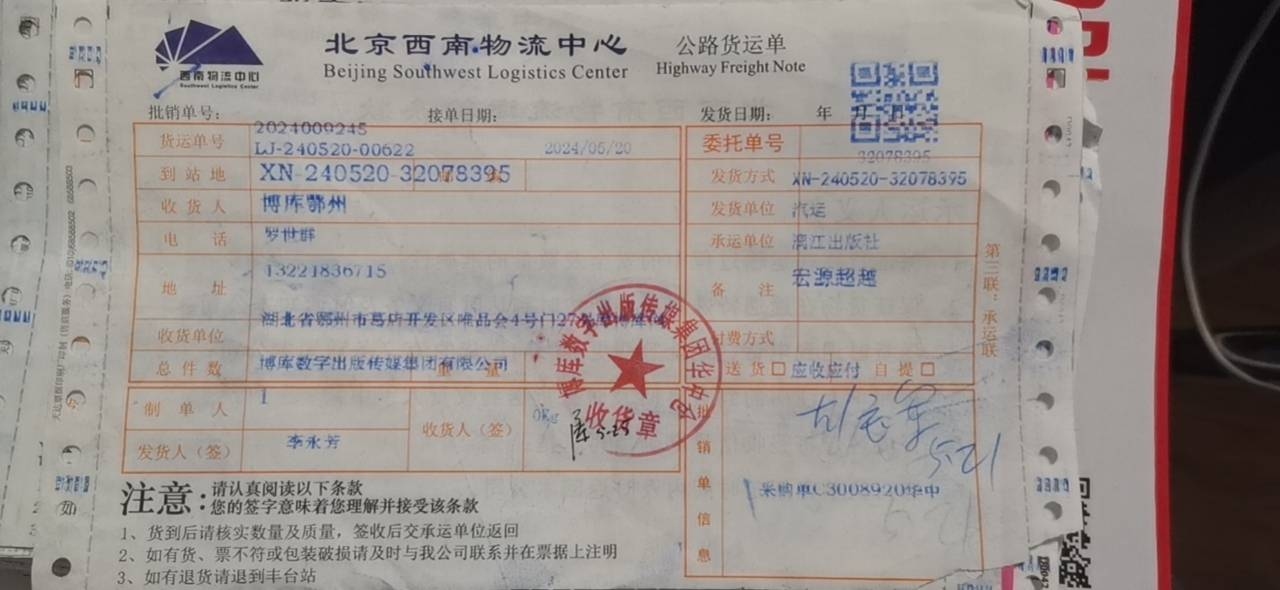 西南物流中心
Southwest Logistics Center
北京西南物流中心
Beijing Southwest Logistics Center
公路货运单
Highway Freight Note
批销单号：
接单日期：
发货日期： 年 月
货运单号
2024009245
LJ-240520-00622
2024/05/20
委托单号
32078395
到站地
XN-240520-32078395
发货方式
XN-240520-32078395
收货人
博库鄂州
发货单位
汽运
电话
罗世群
承运单位
漓江出版社
地址
13221836715
备注
宏源超越
湖北省鄂州市葛店开发区唯品会4号门27
收货单位
付费方式
总件数
博库数字出版传媒集团有限公司
送货 应收应付 自提
制单人
1
收货人（签）
5.25
发货人（签）
李永芳
博库数字出版传媒集团华中仓
收货章
5.21
批销单信息
采购单C3008920华中
5.21
第三联：承运联
注意：请认真阅读以下条款
您的签字意味着您理解并接受该条款
1、货到后请核实数量及质量，签收后交承运单位返回
2、如有货、票不符或包装破损请及时与我公司联系并在票据上注明
3、如有退货请退到丰台站